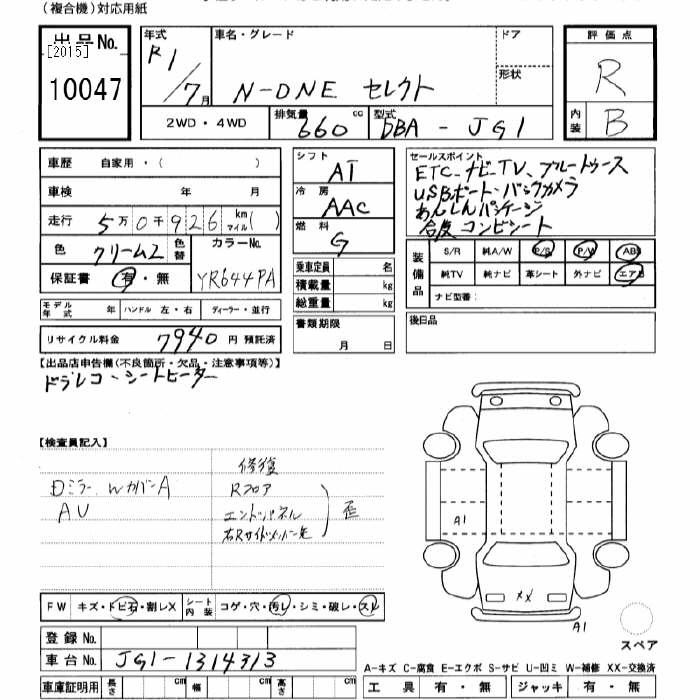 （複合機）対応用紙
出品No.
[2015]
10047
年式
R1/7月
車名・グレード
N-ONE セレクト
ドア
形状
評価点
R
内装
B
2WD・4WD
排気量 660 cc
型式 DBA-JG1
車歴 自家用・（ ）
車検 年 月
走行 5万0千926 km マイル（ ）
色 クリーム2 色替
カラーNo. YR644PA
保証書 有・無
モデル年式 年 ハンドル 左・右 ディーラー・並行
リサイクル料金 7940 円 預託済
シフト AT
冷房 AAC
燃料 G
乗車定員 名
積載量 kg
総重量 kg
書類期限
月 日
セールスポイント
ETC_ナビ_TV、ブルートゥース
USBポート・バックカメラ
あんしんパッケージ
合皮コンビシート
装備品
S/R 純A/W P/S P/W ABS
純TV 純ナビ 革シート 外ナビ エアB
ナビ型番：
後日品
【出品店申告欄（不良箇所・欠品・注意事項等）】
ドラレコ・シートヒーター
【検査員記入】
修復
Dミラー、WカバーA
Rフロア
AU
エンドパネル
歪
右Rサイドメンバー先
A1
XX
A1
スペア
FW キズ・トビ石・割レX
シート内装 コゲ・穴・汚レ・シミ・破レ・スレ
登録No.
車台No. JG1-1314313
車庫証明用 長さ cm 幅 cm 高さ cm
A-キズ C-腐食 E-エクボ S-サビ U-凹ミ W-補修 XX-交換済
工具 有・無 ジャッキ 有・無